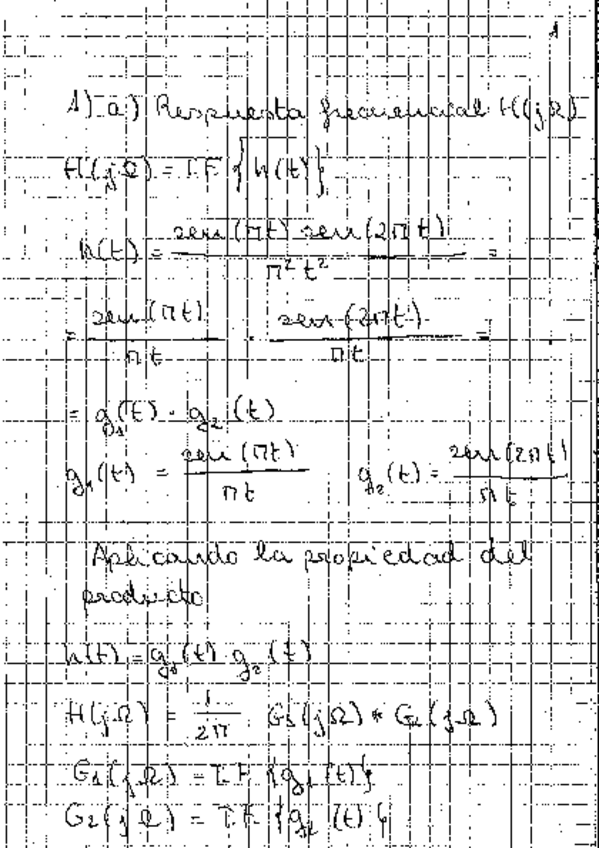 1
1) a) Respuesta frecuencial H(jΩ)
H(jΩ) = T.F. {h(t)}
h(t) = sen(πt) sen(2πt) / π² t² =
= sen(πt) / πt · sen(2πt) / πt =
= g₁(t) · g₂(t)
g₁(t) = sen(πt) / πt    g₂(t) = sen(2πt) / πt
Aplicando la propiedad del
producto
h(t) = g₁(t) g₂(t)
H(jΩ) = 1/2π G₁(jΩ) * G₂(jΩ)
G₁(jΩ) = T.F. {g₁(t)}
G₂(jΩ) = T.F. {g₂(t)}